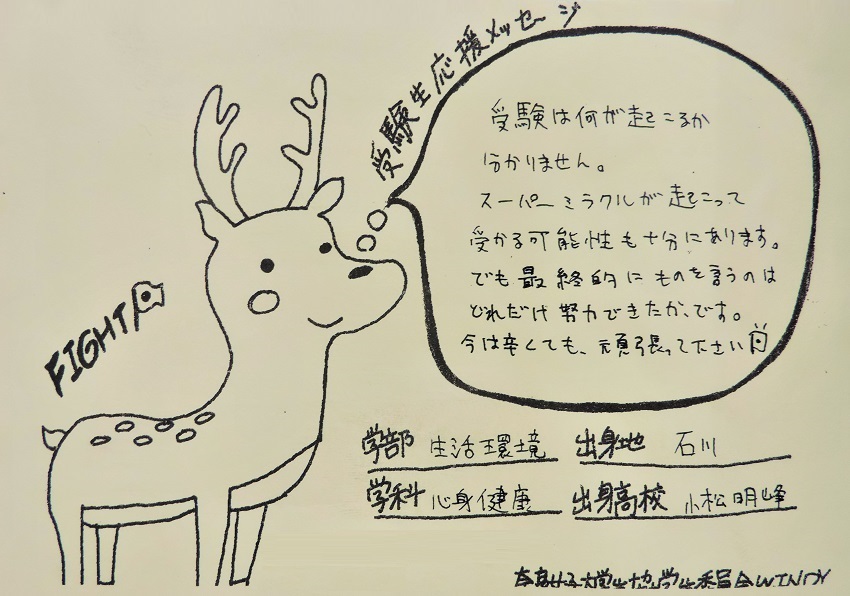 受験生応援メッセージ
受験は何が起こるか
分かりません。
スーパーミラクルが起こって
受かる可能性も十分にあります。
でも最終的にものを言うのは
どれだけ努力できたか、です。
今は辛くても、頑張って下さい
FIGHT
学部 生活環境 出身地 石川
学科 心身健康 出身高校 小松明峰
奈良女子大学生協学生委員会WINDY